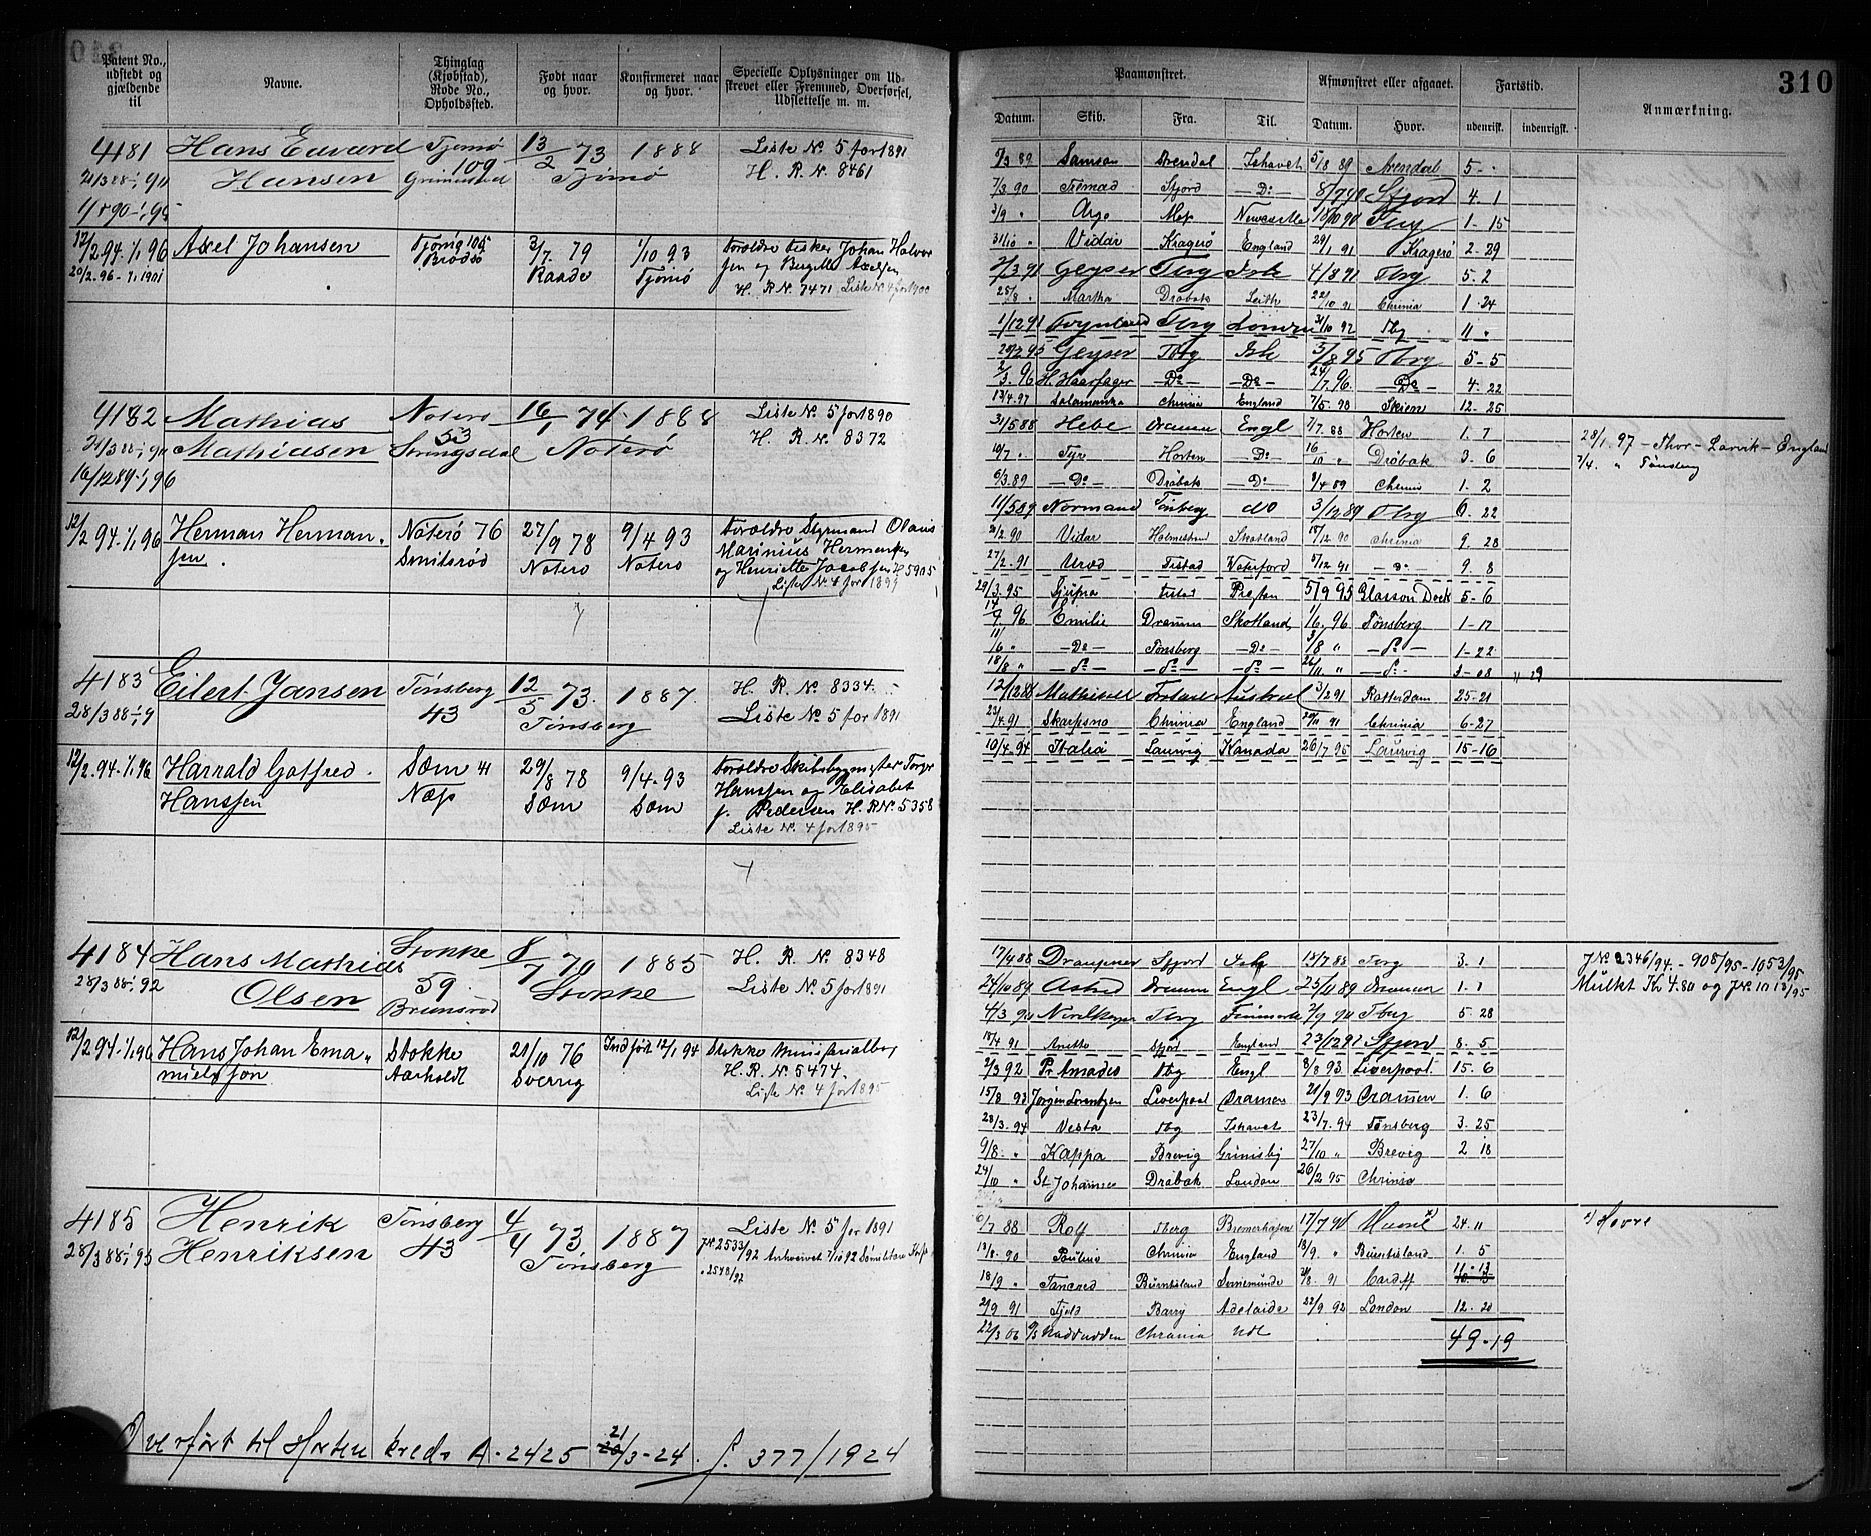 310
Patent No., udstedt og gjældende til
Navne.
Thinglag (Kjøbstad), Rode No., Opholdssted.
Født naar og hvor.
Konfirmeret naar og hvor.
Specielle Oplysninger om Udskrevet eller Fremmed, Overførsel, Udslettelse m. m.
4181 Hans Edvard Tjømø 13/2 73 1888 Liste No. 5 for 1891
Hansen 109 Tjømø H. R. No. 8461
12/2 94-1/1 96 Axel Johansen Tjømø 105 3/7. 79 1/10 93 Forældre Fisker Johan Halvor
20/2. 96-1/1 1901 Raade Tjømø sen og Axelsen
H. R No. 7471 Liste No. 4 for 1900
4182 Mathias Nøterø 16/1 74 1888 Liste No. 5 for 1890
Mathiasen 53 Nøterø H. R. No. 8372
16/12 89-1/1 96
12/2 94-1/1 96 Herman Herman- Nøterø 76 27/9 78 9/4 93 Forældre Styrmand Olaus
sen. Smidsrød Nøterø Nøterø Marinius Hermansen
og Henriette Jacobsen H 5905
Liste No. 4 for 1899
4183 Eilert Jansen Tønsberg 12/5 73. 1887. H. R. No. 8334.
43 Tønsberg Liste No. 5 for 1891
12/2. 94-1/1 96 Harrald Gotfred Sæm 41 29/8 78 9/4-93 Forældre Skibsbygmester
Hanssen Næs Sæm Sæm Hanssen og Elisabet
f. Pedersen H. R No. 5358
Liste No. 4 for 1895
4184 Hans Mathias Stokke 8/7 70 1885 H. R. No 8348
28/3 88-1/1 92 Olsen 59 Stokke Liste No. 5 for 1891
Brunsrød
12/2 94-1/1 96 Hans Johan Ema- Stokke 21/10 76 Indført 12/1 94 Stokke Ministerialbog
nuelssøn Aarholdt Sverrig H. R. No. 5474.
Liste No. 4 for 1895
4185 Henrik Tønsberg 4/4 73 1887 Liste No. 5 for 1891
28/3 88-1/1 93 Henriksen 43 Tønsberg
Overført til Horten kreds A-2425 21/3-24. J. 377/1924
Paamønstret. Afmønstret eller afgaaet. Fartstid. Anmærkning.
Datum. Skib. Fra. Til. Datum. Hvor. udenrisk. indenrigsk.
5/3 89 Samson Arendal Ishavet 5/8 89 Arendal 5 -
7/3 90 Sfjord - Do - 8/7 90 Sfjord 4. 1
3/9 " Argo Newcastle 18/10 90 Tbrg 1-15
31/10 " Vidar Kragerø England 29/1 91 Kragerø 2-29
Geyser Tbrg Ish 4/8 91 Tbrg 5.2
25/8. Martha Drøbak Leith 22/10 91 Chrinia 1.24
1/12 91 Tbrg London 31/10 92 Tbg 11 "
Geyser Tbrg Ish 5/8 95 Tbrg 5-5
2/3. 96 H. Haarfager - Do - - Do - 24/7. 96 - Do - 4. 22
13/4. 97 Salamanka Chrinia England 7/5. 98 Skien 12-25
31/5 88 Hebe Drammen Engl 7/7. 88 Horten 1. 7
28/1. 97 - Thor - Larvik - England
7/4. " Tønsberg
10/7 " Tyr Horten - Do - 16/10 " Drøbak 3. 6
6/3. 89 - Do - Drøbak - Do - 8/4 89 Chrinia 1. 2
11/5 89 Normand Tønsberg do 3/12 89 Tbrg 6. 22
2/2. 90 Vidar Holmestrand Skotland 18/12 90 Chrinia 9. 28
27/2. 91 Uræd Fistad Waterford 5/12 91 - Do - 9. 8
29/3. 95 5/9 95 Glasson Dock 5-6
14/4. 96 Emilie Dramm Skotland 1/6. 96 Tønsberg 1-17
11/6 " - Do - Tønsberg - Do - 3/8 " - Do - 1-22
18/8 " - Do - - Do - - Do - 26/11 " - Do - 3-08 " 9
12/12 88 Austral 3/2 91 Rotterdam 25-21
23/4. 91 Skarpsno Chrinia England 20/11 91 Chrinia 6-27
10/4. 94 Italia Laurvig Kanada 26/7. 95 Laurvig 15-16
17/4 88 Draupner Sfjord 18/7 88 Tbrg 3. 1
JNo 2346/94. - 908/95 - 1053/95
24/10 89 Astræa Dramm Engl 25/11 89 Drammen 1. 1
Mulkt Kr 4.80 og JNo 1012/95
4/3. 90 Tbrg Finmarken 7/9 90 Tbrg 5. 28
18/4 91 Anette Sfjord England 23/12 91 Sfjord 8. 5
2/3 92 Pr Amadeo Tbg Engl 8/8 93 Liverpool. 15. 6
15/8 93 Jørgen Lorentzen Liverpool Dramen 21/9 93 Dramen 1. 6
28/3. 94 Vesta Tbg Ishavet 23/7. 94 Tønsberg 3. 25
9/8. " Kappa Brevig Grimsby 27/10 " Brevig 2 18
29/10 " St Johannes Drøbak London 26/2. 95 Chrinia
6/7 88 Rolf Tbrg Bremerhafen 17/7 90 x) 24. 11
x) Havre
13/8. 90 Paulus Chrinia England 18/9. " Burntisland 1. 5
18/9 " Tancred Burntisland 91 Cardiff 11-13
2/9 91 Fjeld Barry Adelaide 22/9 92 London 12. 20
22/3 06 D/S Chrania Udl
49-19